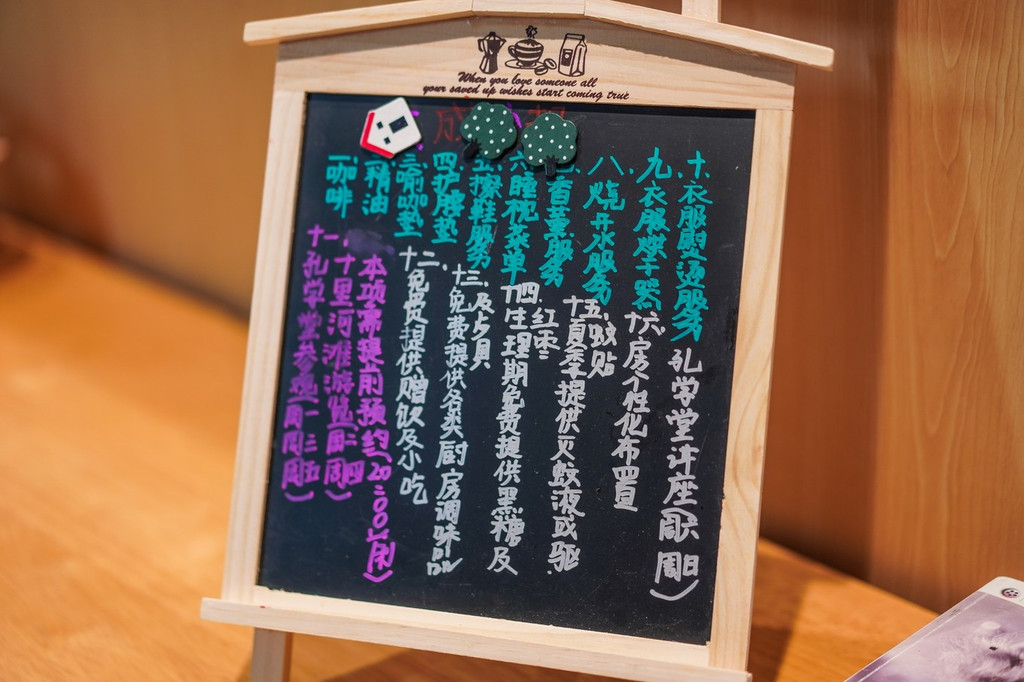 When you love someone all
your saved up wishes start coming true
一.咖啡
二.精油
三.瑜咖垫
四.护膝垫
五.擦鞋服务
六.睡枕菜单
香薰服务
八.烧开水服务
九.衣服烘干器
十.衣服熨烫服务
十一.
孔学堂参观(周一周三周五)
十里河滩游览(周二周四)
本项需提前预约(20:00以前)
十二.免费提供赠饮及小吃
十三.免费提供各类厨房调味品
十四.生理期免费提供黑糖及
红枣
十五.夏季提供灭蚊液或驱
蚊贴
十六.房个性化布置
孔学堂讲座(周六周日)